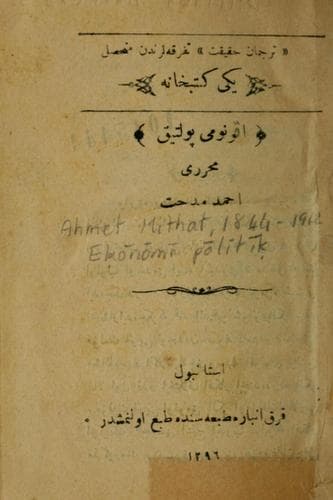 « ترجمان حقیقت » تفرقه لرندن متحصل
یکی کتبخانه
اقونومی پولتیق
محرری
احمد مدحت
Ahmet Mithat, 1844-1912
Ekōnōmī pōlītīḳ
استانبول
قرق انبار مطبعه سنده طبع اولنمشدر ٠
١٢٩٦